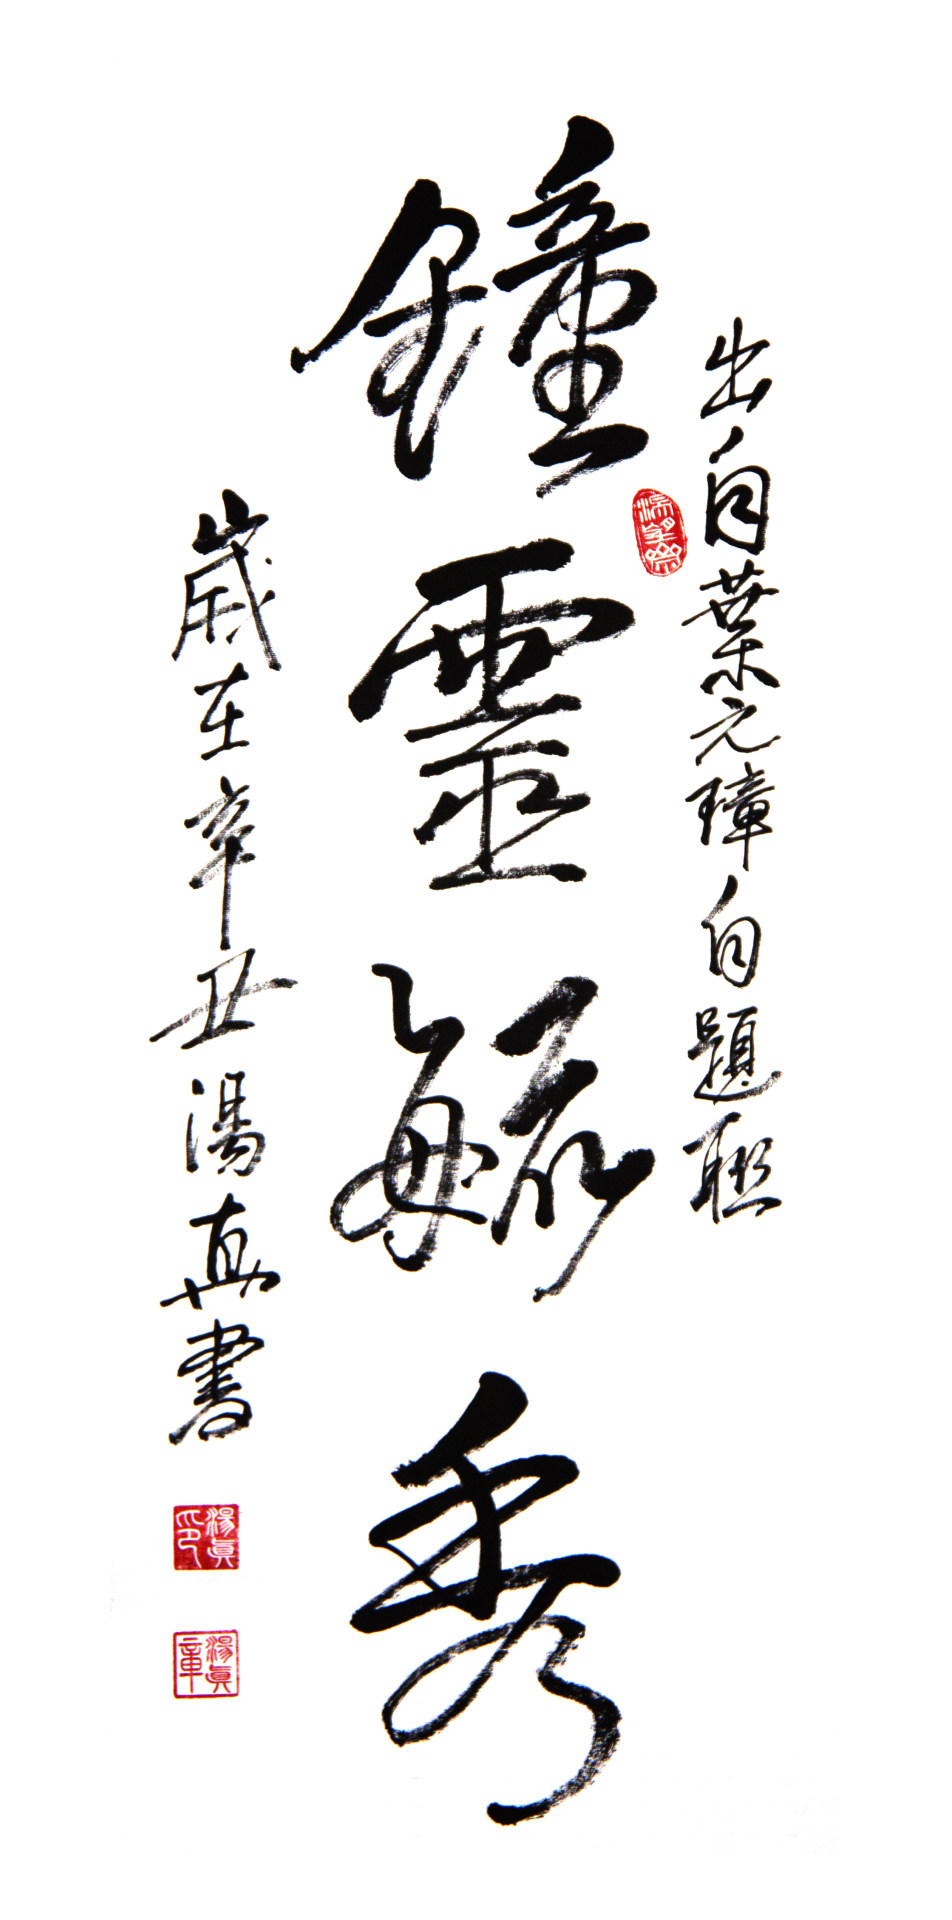 出自葉元璋自題聯
鐘靈毓秀
歲在辛丑湯真書
湯真印
湯真章